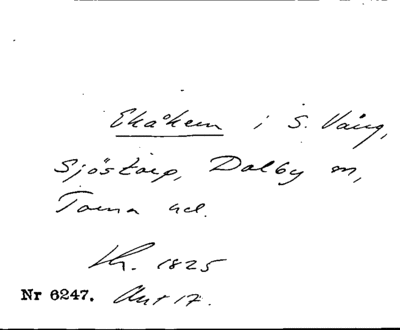 Ekåkern i S. Vång,
Sjöstorp, Dalby sn,
Torna hd.
Kr. 1825
Nr 6247. Akt 17.